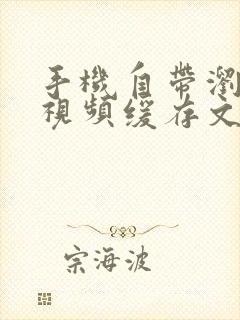 手機自帶瀏
視頻緩存文
宗海波